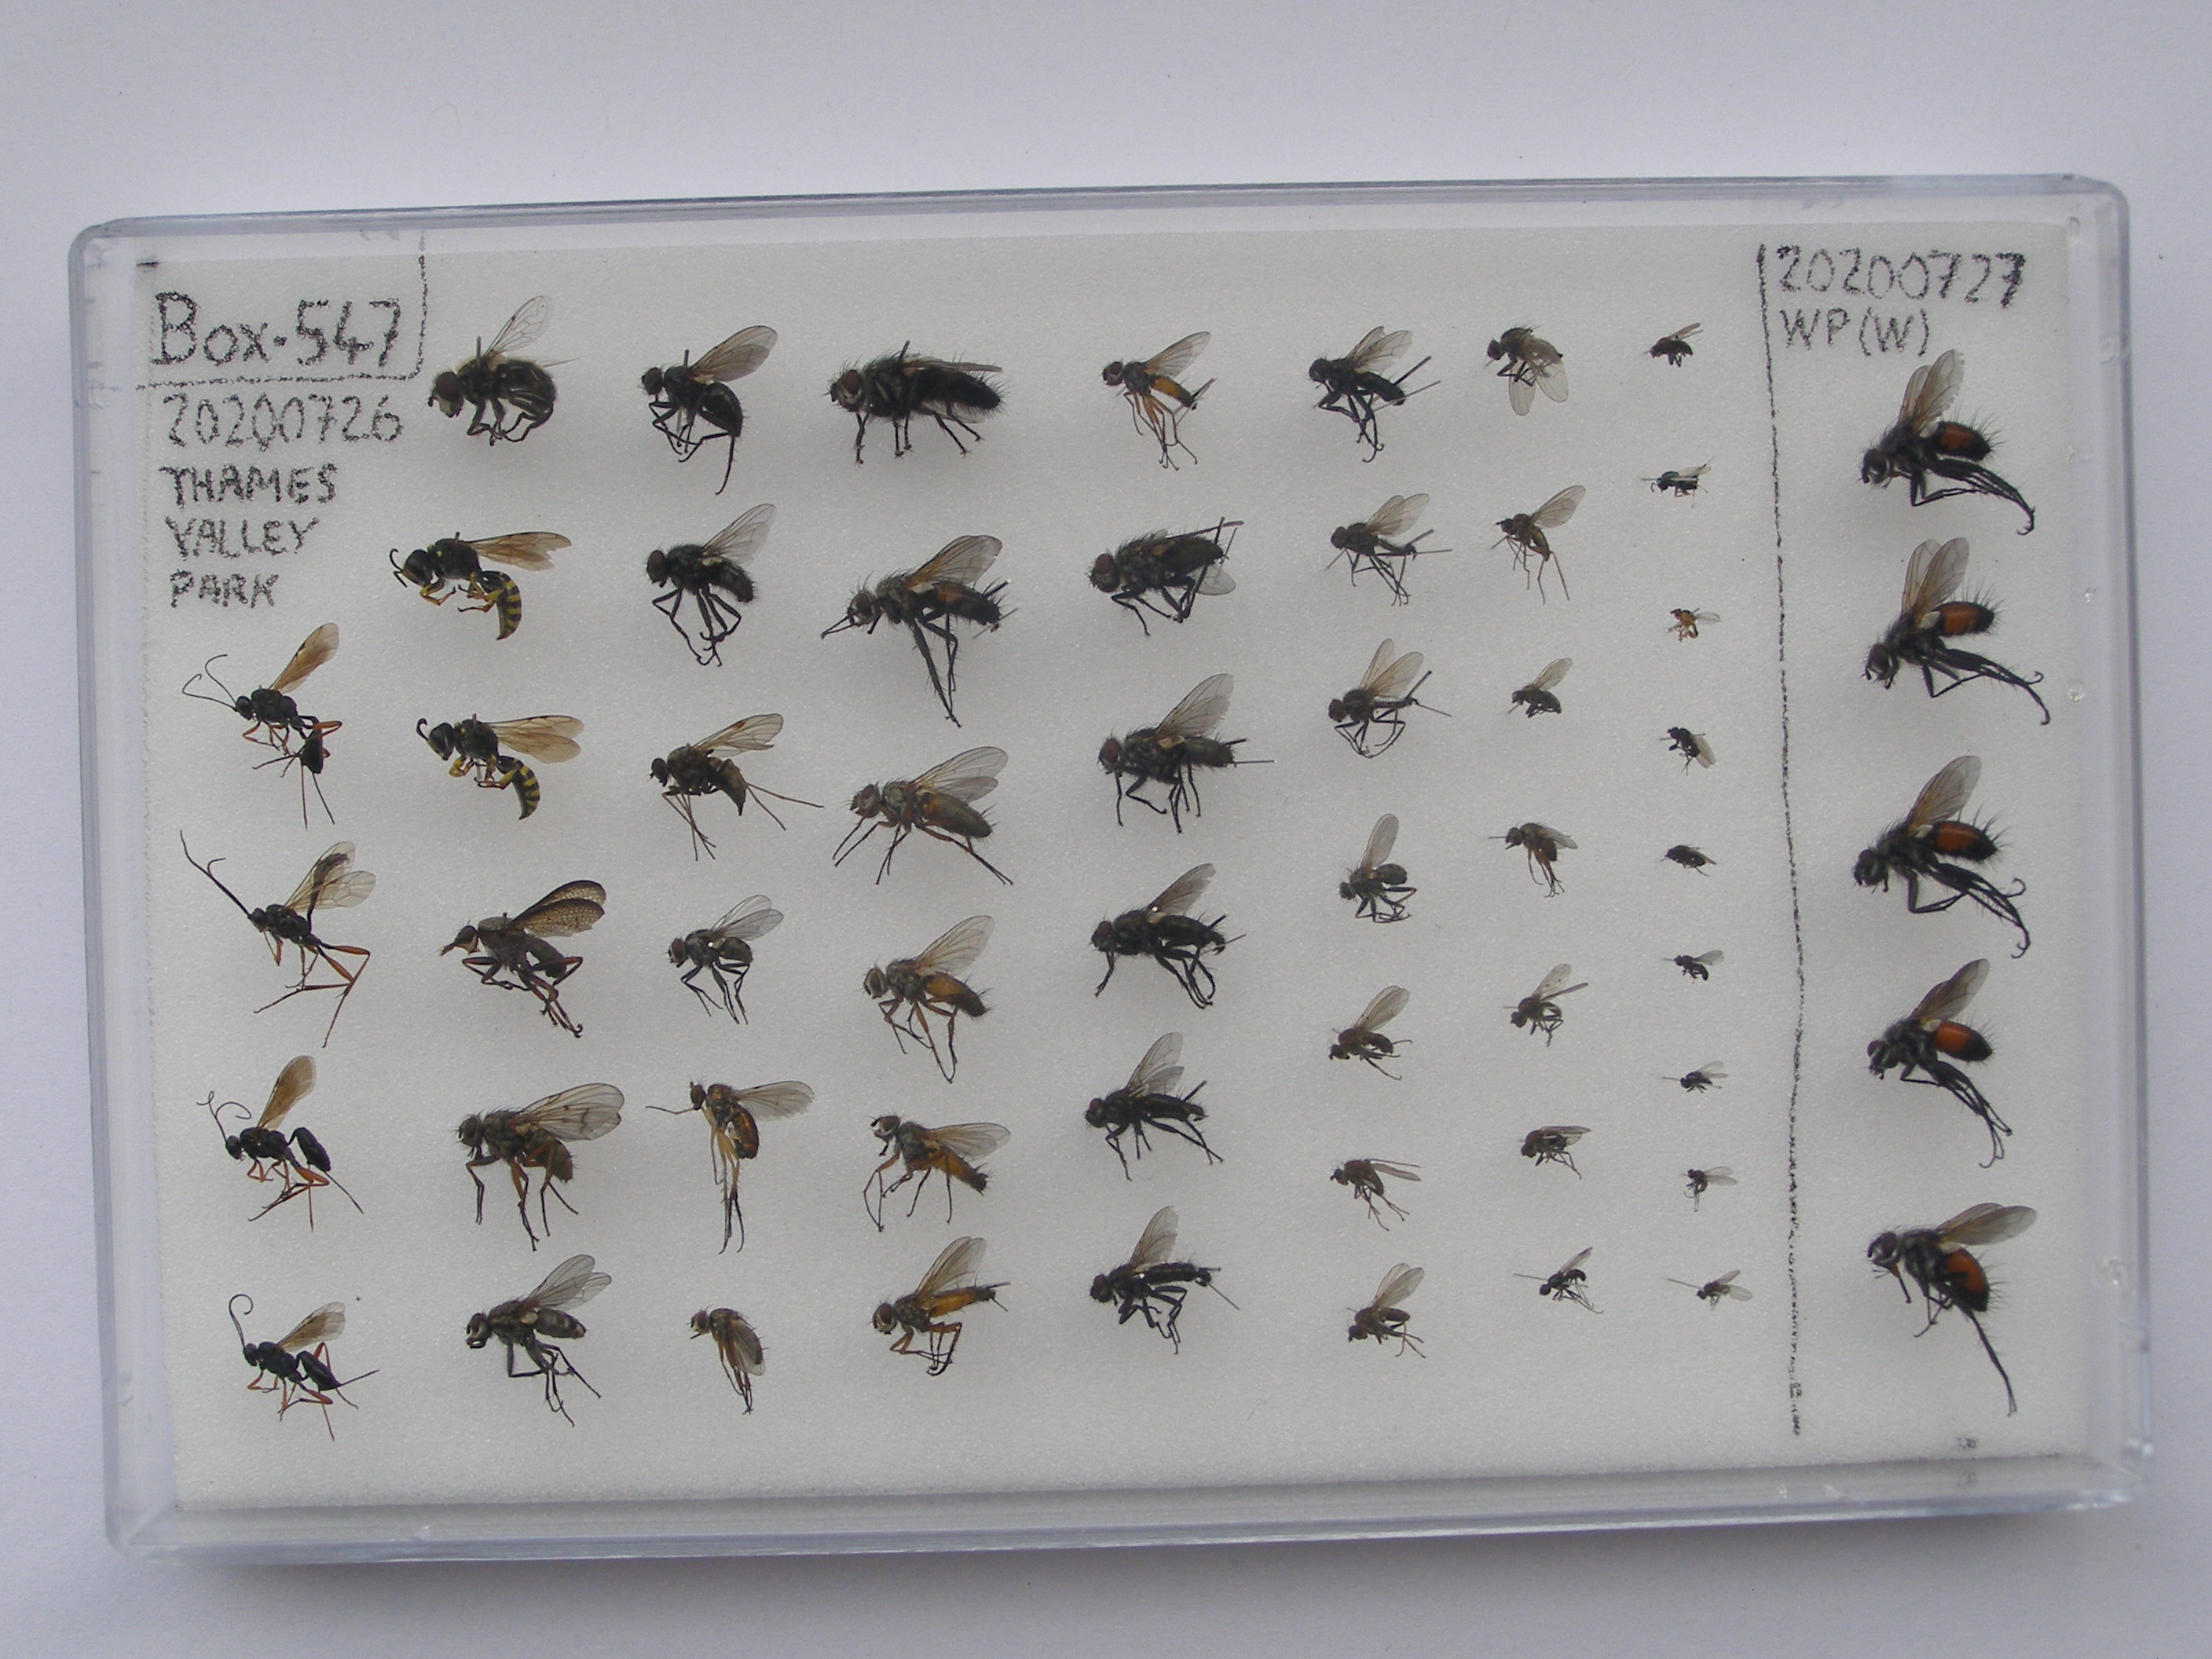 Box-547
20200726
THAMES
VALLEY
PARK
20200727
WP(W)